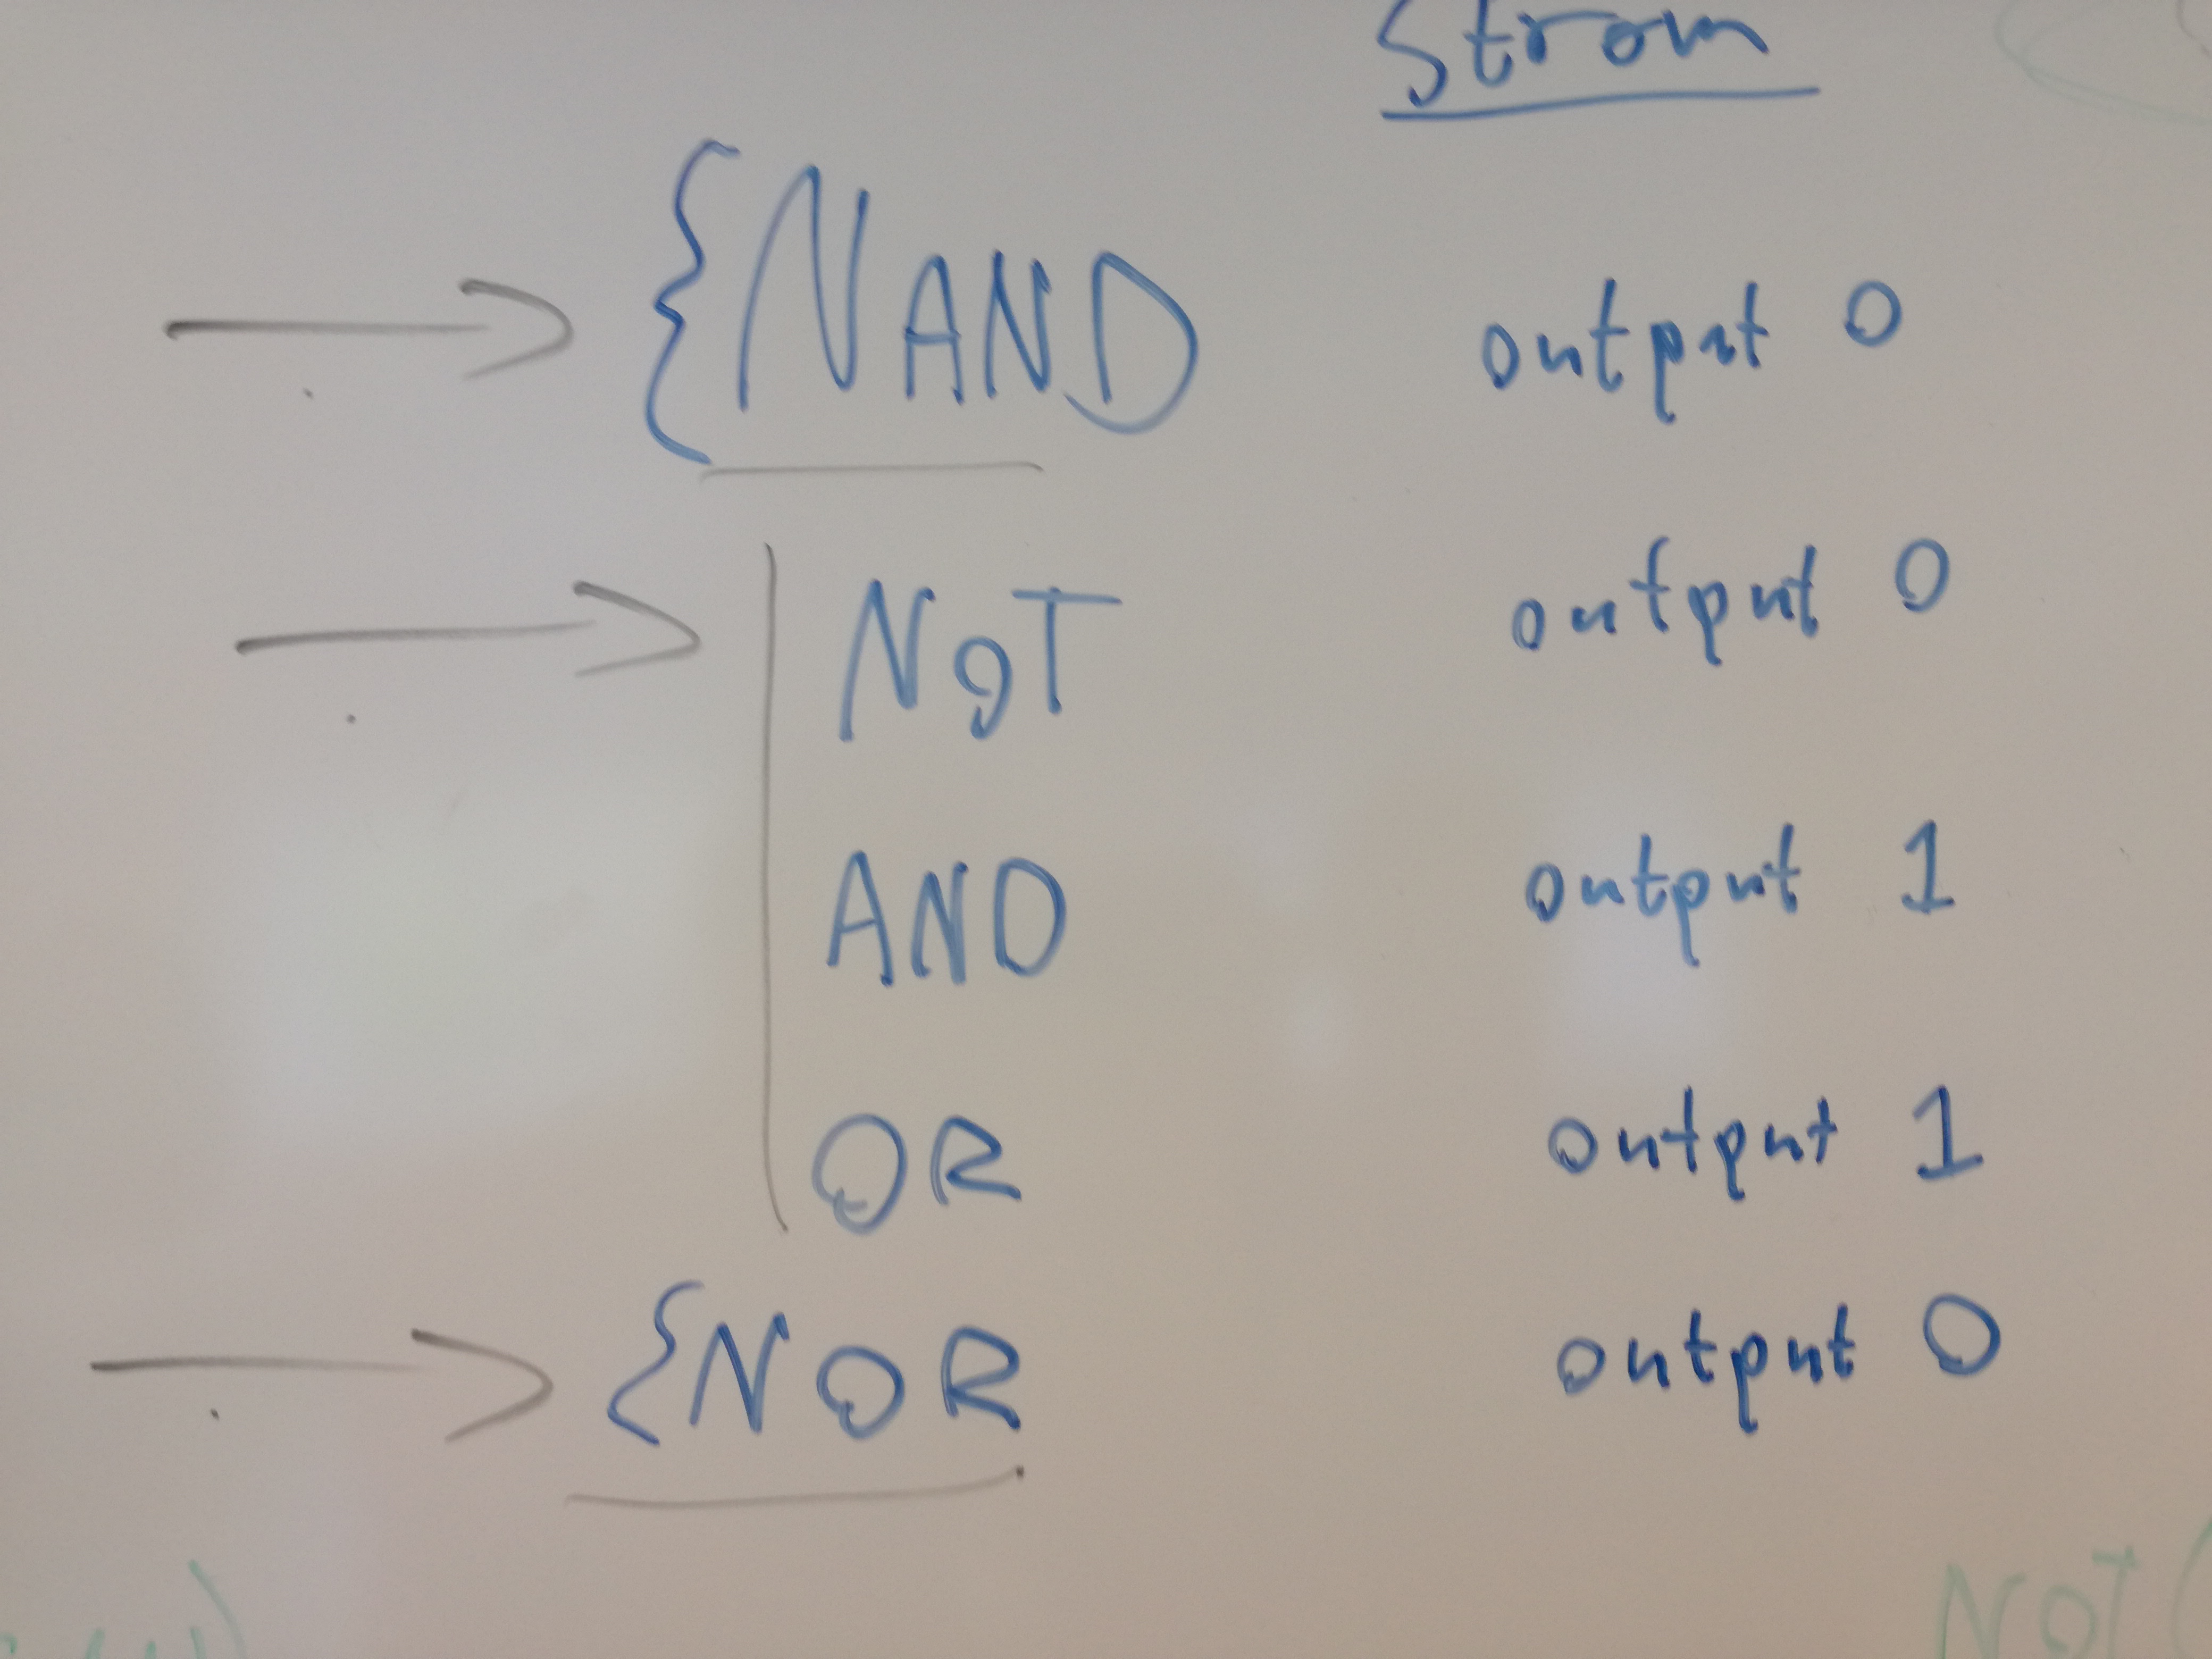 Strom
{NAND output 0
NOT output 0
AND output 1
OR output 1
{NOR output 0
NOT (